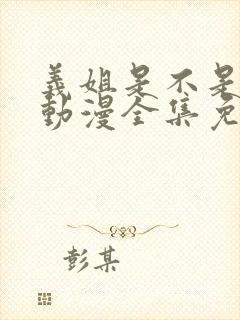 義姐是不是
動漫全集免
彭某